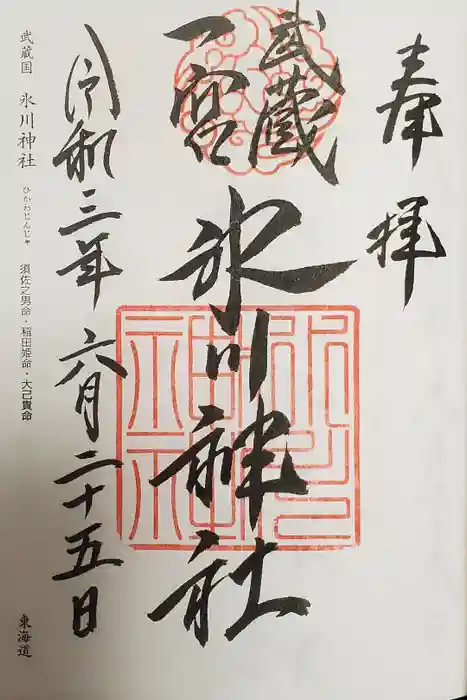 奉拝
武蔵
一宮
氷川神社
令和三年 六月二十五日
武蔵国 氷川神社 ひかわじんじゃ 須佐之男命・稲田姫命・大己貴命
東海道